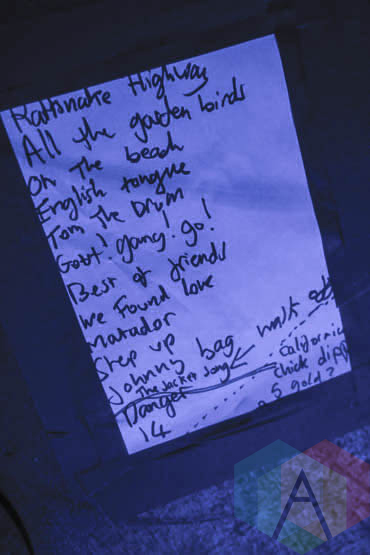 Rattlesnake Highway
All the garden birds
On the beach
English tongue
Tom the Drum
Gott! gang! go!
Best of friends
We Found love
Matador
Step up
Johnny bag
The Jacket Song
Danger
14
walk
California
Chick
gold?
A